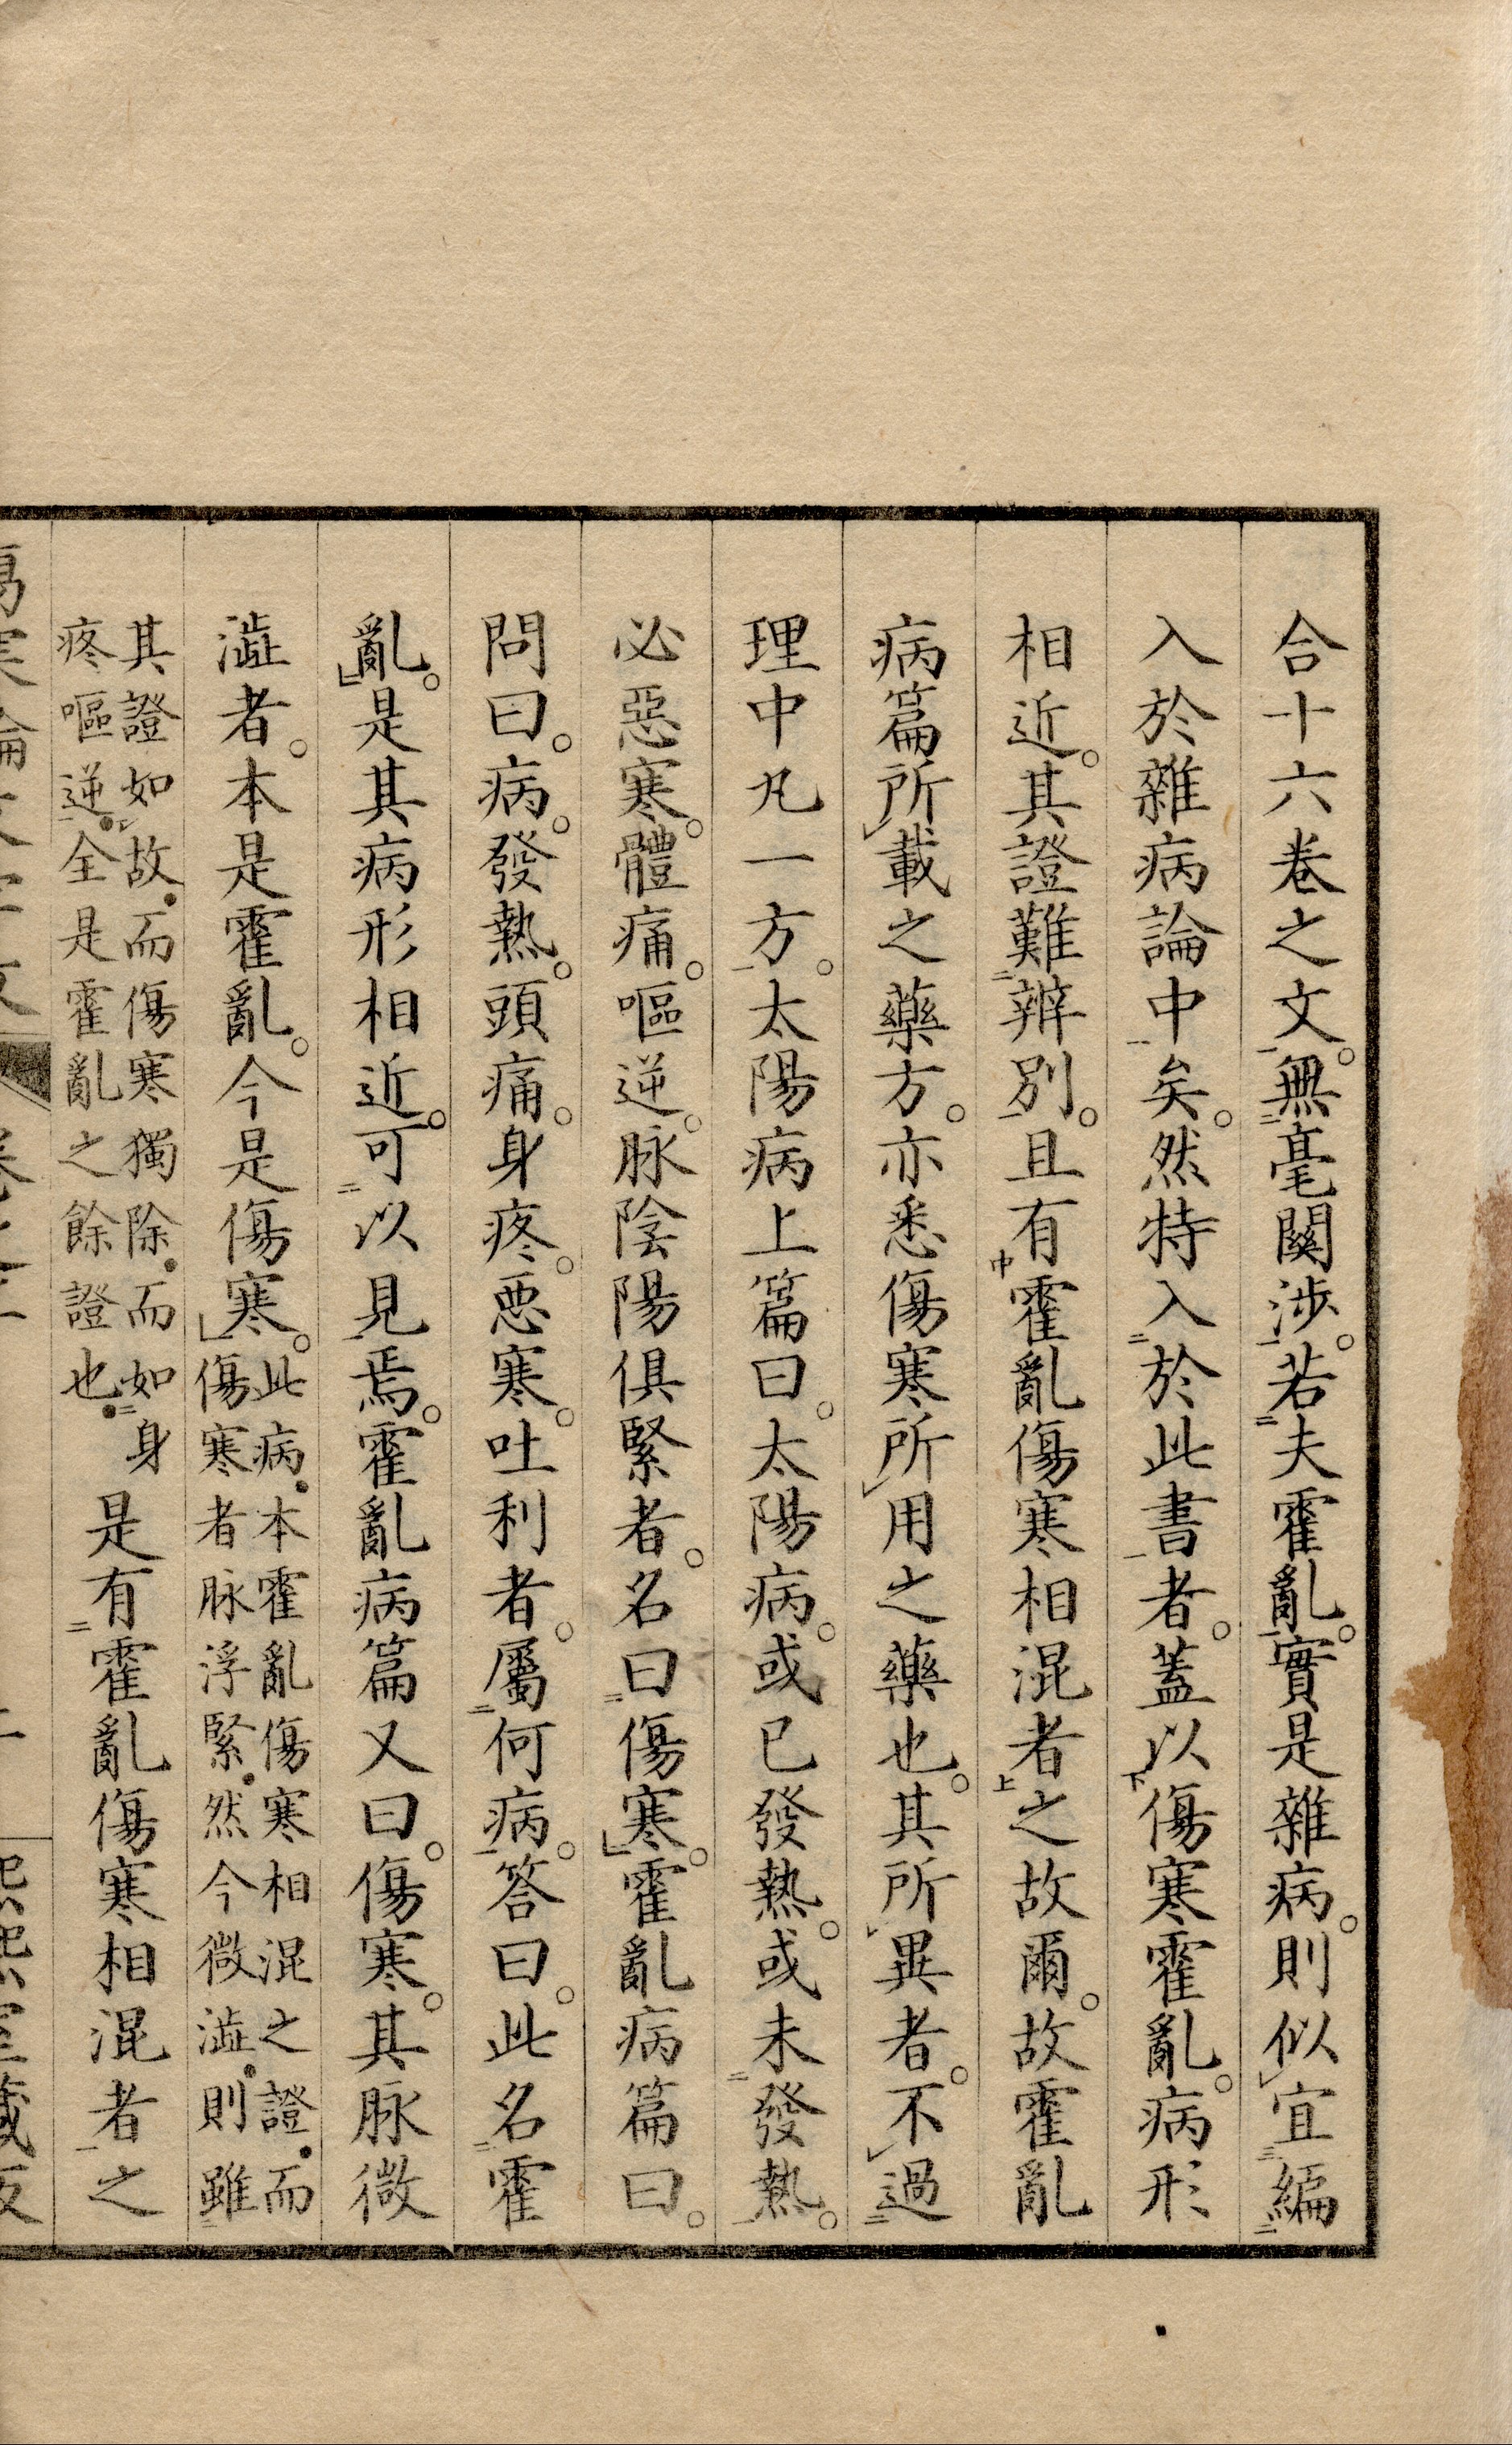 合十六卷之文。無毫關涉。若夫霍亂。實是雜病。則似宜編
入於雜病論中矣。然特入於此書者。蓋以傷寒霍亂。病形
相近。其證難辨別。且有霍亂傷寒相混者之故爾。故霍亂
病篇所載之藥方。亦悉傷寒所用之藥也。其所異者。不過
理中丸一方。太陽病上篇曰。太陽病。或已發熱。或未發熱。
必惡寒。體痛。嘔逆。脉陰陽俱緊者。名曰傷寒。」霍亂病篇曰。
問曰。病。發熱。頭痛。身疼。惡寒。吐利者。屬何病。答曰。此名霍
亂。」是其病形相近。可以見焉。霍亂病篇又曰。傷寒。其脉微
澁者。本是霍亂。今是傷寒。」此病。本霍亂傷寒相混之證。而
傷寒者脉浮緊。然今微澁。則雖
其證如故。而傷寒獨除。而如身
疼嘔逆。全是霍亂之餘證也。是有霍亂傷寒相混者之